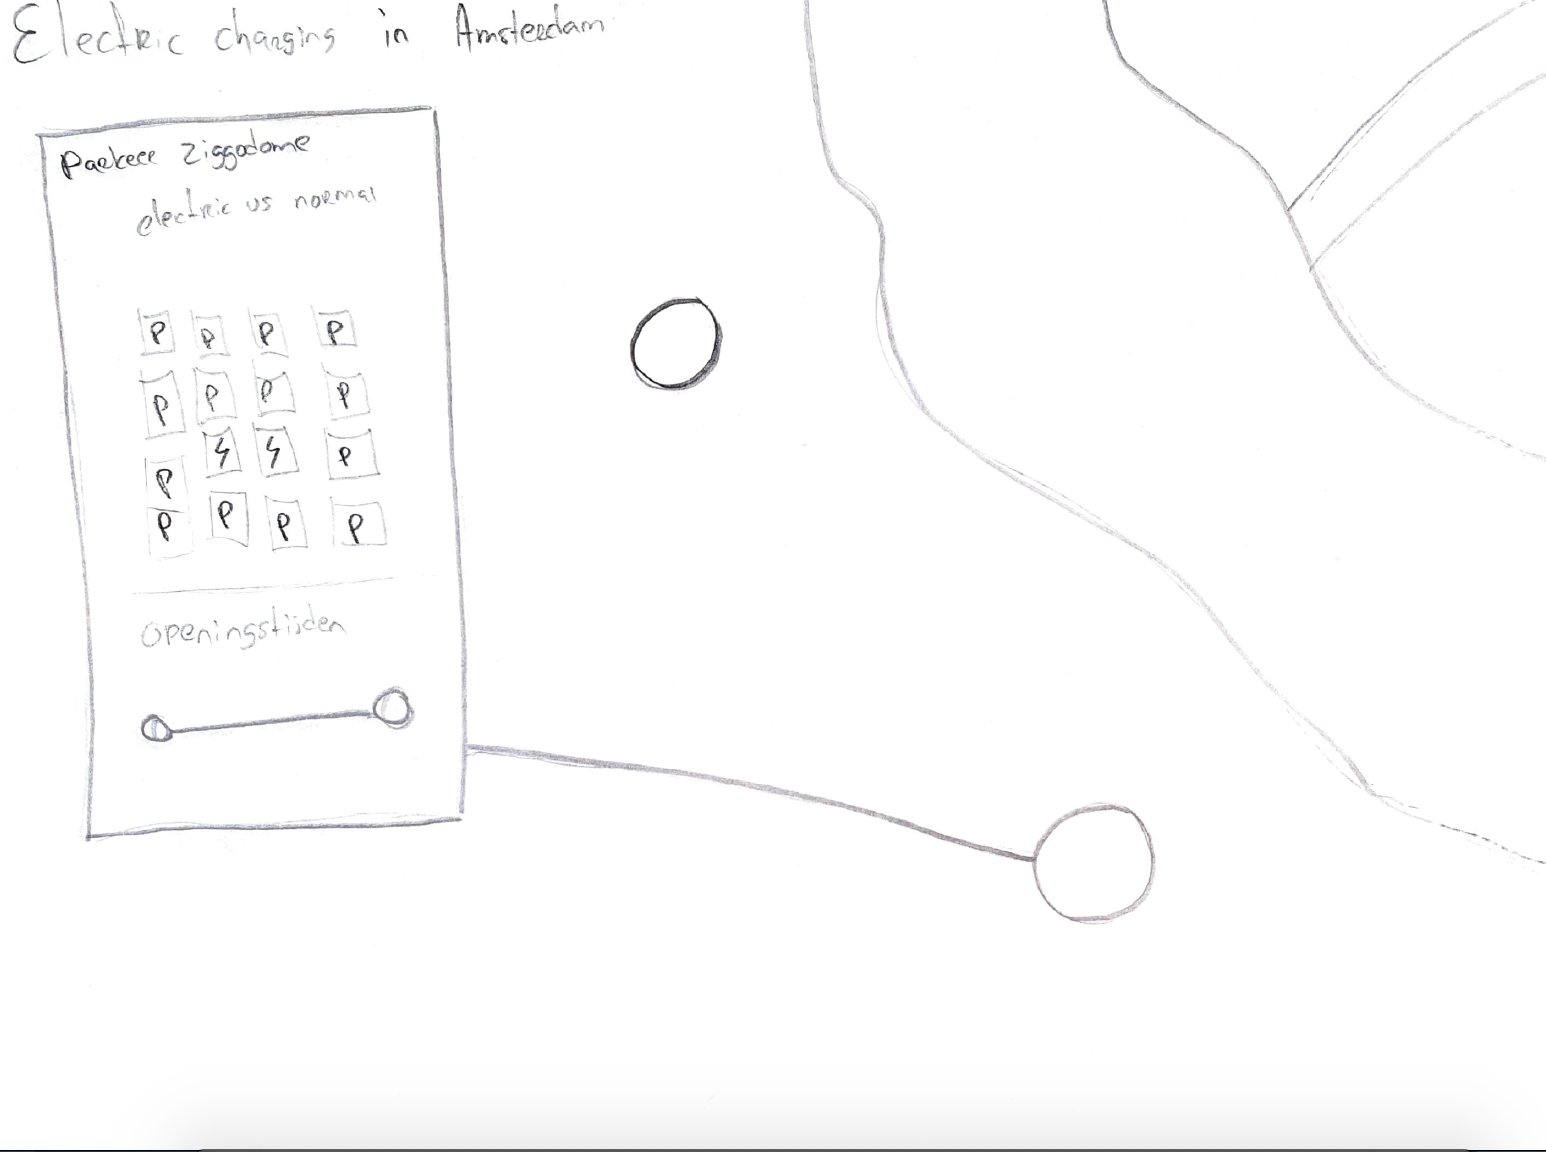 Electric charging in Amsterdam
Parkeer Ziggodome
electric vs normal
P P P P
P P P P
P P
P P P P
Openingstijden